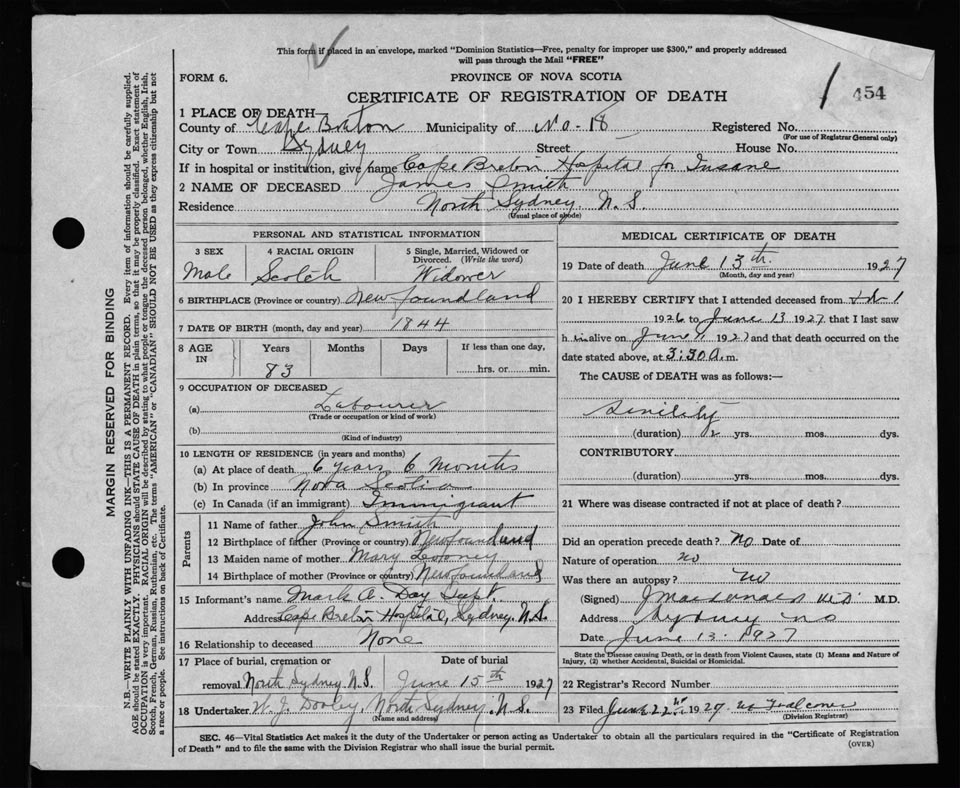 This form if placed in an envelope, marked "Dominion Statistics—Free, penalty for improper use $300," and properly addressed
will pass through the Mail "FREE"
FORM 6.
PROVINCE OF NOVA SCOTIA
454
CERTIFICATE OF REGISTRATION OF DEATH
1 PLACE OF DEATH—
County of Cape Breton Municipality of No-18 Registered No.
(For use of Registrar General only)
City or Town Sydney Street House No.
If in hospital or institution, give name Cape Breton Hospital for Insane
2 NAME OF DECEASED James Smith
Residence North Sydney N. S.
(Usual place of abode)
PERSONAL AND STATISTICAL INFORMATION
3 SEX 4 RACIAL ORIGIN 5 Single, Married, Widowed or Divorced. (Write the word)
Male Scotch Widower
6 BIRTHPLACE (Province or country) Newfoundland
7 DATE OF BIRTH (month, day and year) 1844
8 AGE IN Years Months Days If less than one day,
83 hrs. or min.
9 OCCUPATION OF DECEASED
(a) Labourer
(Trade or occupation or kind of work)
(b)
(Kind of industry)
10 LENGTH OF RESIDENCE (in years and months)
(a) At place of death 6 years 6 months
(b) In province Nova Scotia
(c) In Canada (if an immigrant) Immigrant
Parents
11 Name of father John Smith
12 Birthplace of father (Province or country) Newfoundland
13 Maiden name of mother Mary
14 Birthplace of mother (Province or country) Newfoundland
15 Informant's name Mark A. Day Supt.
Address Cape Breton Hospital, Sydney. N.S.
16 Relationship to deceased None
17 Place of burial, cremation or Date of burial
removal North Sydney N.S. June 15th 1927
18 Undertaker W. J. Dooley, North Sydney. N.S.
(Name and address)
MEDICAL CERTIFICATE OF DEATH
19 Date of death June 13th. 1927
(Month, day and year)
20 I HEREBY CERTIFY that I attended deceased from
1926 to June 13 1927 that I last saw
h im alive on June 1927 and that death occurred on the
date stated above, at 3:30 a. m.
The CAUSE of DEATH was as follows:—
Senility
(duration) 2 yrs. mos. dys.
CONTRIBUTORY
(duration) yrs. mos. dys.
21 Where was disease contracted if not at place of death?
Did an operation precede death? No Date of
Nature of operation no
Was there an autopsy? no
(Signed) J Macdonald MD. M.D.
Address Sydney NS
Date June 13. 1927
State the Disease causing Death, or in death from Violent Causes, state (1) Means and Nature of
Injury, (2) whether Accidental, Suicidal or Homicidal.
22 Registrar's Record Number
23 Filed June 22nd 1927
(Division Registrar)
SEC. 46—Vital Statistics Act makes it the duty of the Undertaker or person acting as Undertaker to obtain all the particulars required in the "Certificate of Registration
of Death" and to file the same with the Division Registrar who shall issue the burial permit.
(OVER)
MARGIN RESERVED FOR BINDING
N.B.—WRITE PLAINLY WITH UNFADING INK—THIS IS A PERMANENT RECORD. Every item of information should be carefully supplied.
AGE should be stated EXACTLY. PHYSICIANS should STATE CAUSE OF DEATH in plain terms, so that it may be properly classified. Exact statement of
OCCUPATION is very important. RACIAL ORIGIN will be described by stating to what people or tongue the deceased person belonged, whether English, Irish,
Scotch, French, German, Russian, Ruthenian, etc. The terms "AMERICAN" or "CANADIAN" SHOULD NOT BE USED as they express citizenship but not
a race or people. See instructions on back of Certificate.